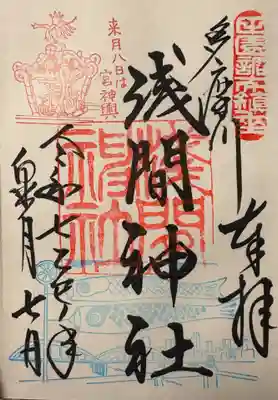 田園調布鎮座
奉拝
多摩川
浅間神社
浅間神社
来月八日は
宮神輿
令和七乙巳年
皐月七日